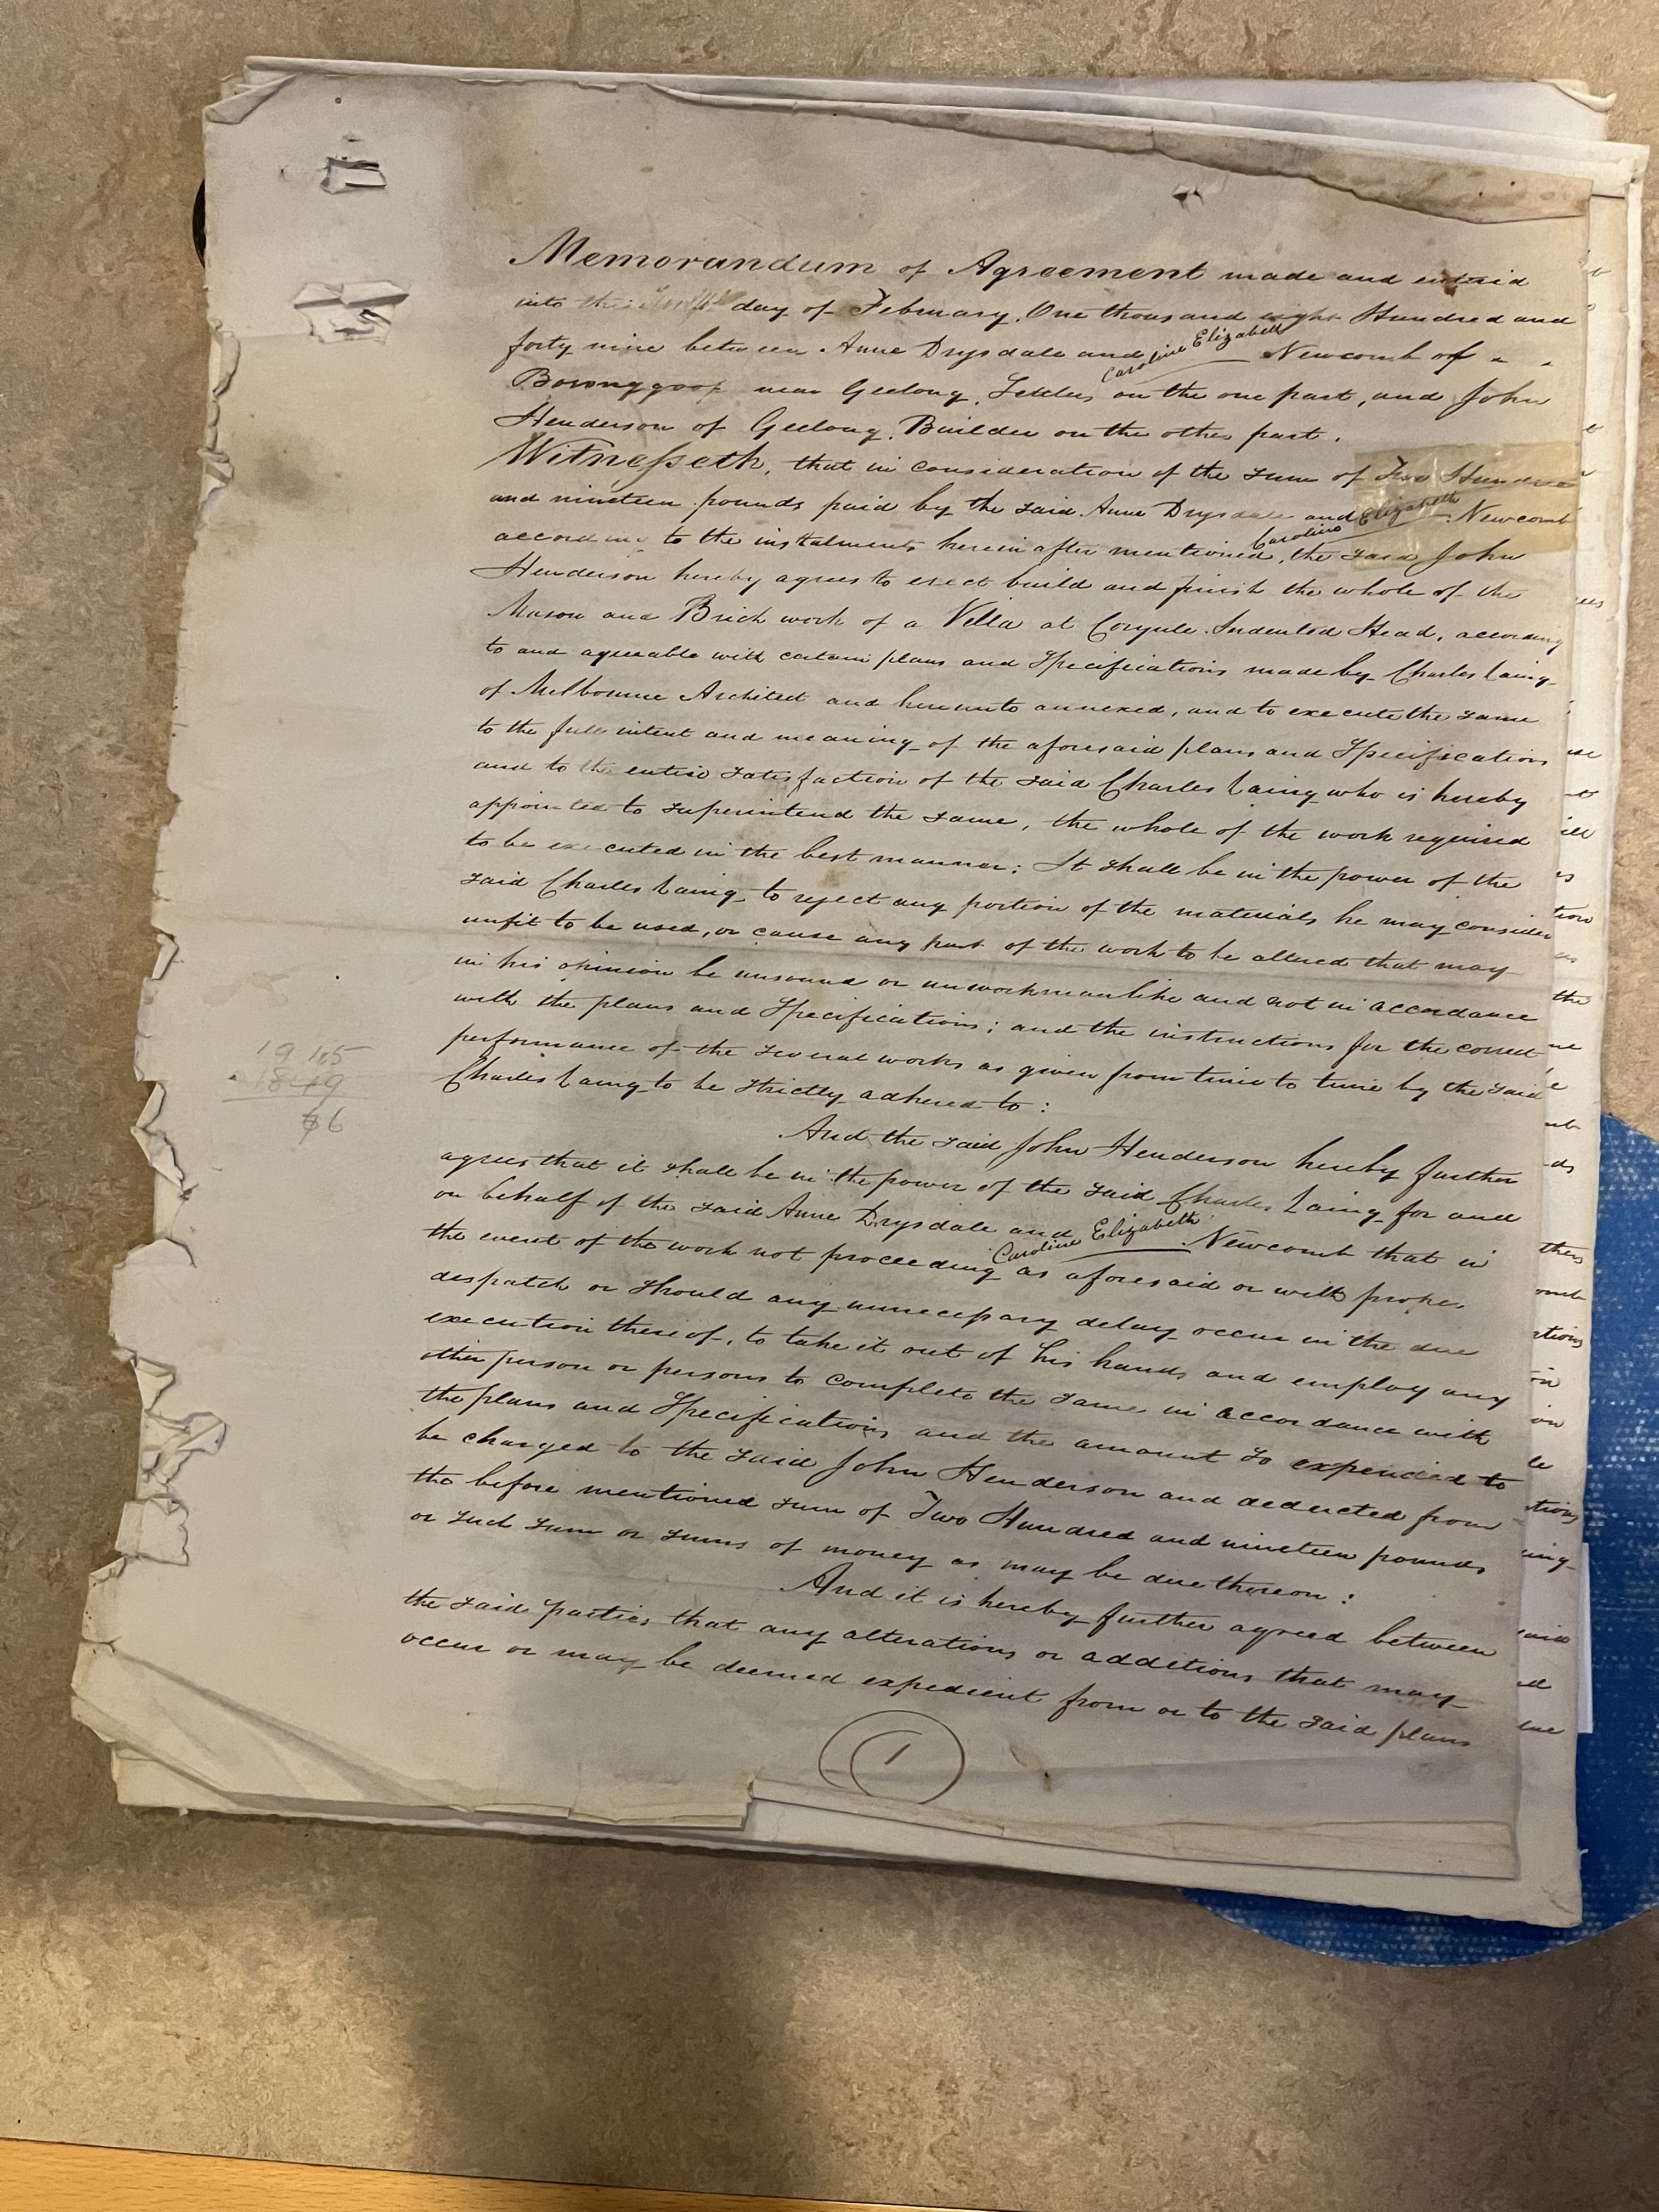 Memorandum of Agreement made and enterid
into the day of February, One thousand eight Hundred and
forty nine between Anne Drysdale and Caroline Elizabeth Newcomb of
Boronggoop near Geelong, Settlers on the one part, and John
Henderson of Geelong, Builder on the other part.
Witnesseth, that in consideration of the sum of Two Hundred
and nineteen pounds paid by the said Anne Drysdale and Caroline Elizabeth Newcomb
according to the instalments herein after mentioned, the said John
Henderson hereby agrees to erect build and finish the whole of the
Mason and Brick work of a Villa at Coryule Indented Head, according
to and agreeable with certain plans and Specifications made by Charles Laing
of Melbourne Architect and hereunto annexed, and to execute the same
to the full intent and meaning of the aforesaid plans and Specifications
and to the entire satisfaction of the said Charles Laing who is hereby
appointed to superintend the same, the whole of the work required
to be executed in the best manner; It shall be in the power of the
said Charles Laing to reject any portion of the materials he may consider
unfit to be used, or cause any part of the work to be altered that may
in his opinion be unsound or unworkmanlike and not in accordance
with the plans and Specifications; and the instructions for the correct
performance of the several works as given from time to time by the said
Charles Laing to be strictly adhered to:
19 05
1849
56
And the said John Henderson hereby further
agrees that it shall be in the power of the said Charles Laing for and
on behalf of the said Anne Drysdale and Caroline Elizabeth Newcomb that in
the event of the work not proceeding as aforesaid or with proper
despatch or should any unnecessary delay occur in the due
execution thereof, to take it out of his hands and employ any
other person or persons to complete the same in accordance with
the plans and Specifications and the amount so expended to
be charged to the said John Henderson and deducted from
the before mentioned sum of Two Hundred and nineteen pounds
or such sum or sums of money as may be due thereon:
And it is hereby further agreed between
the said parties that any alterations or additions that may
occur or may be deemed expedient from or to the said plans
1